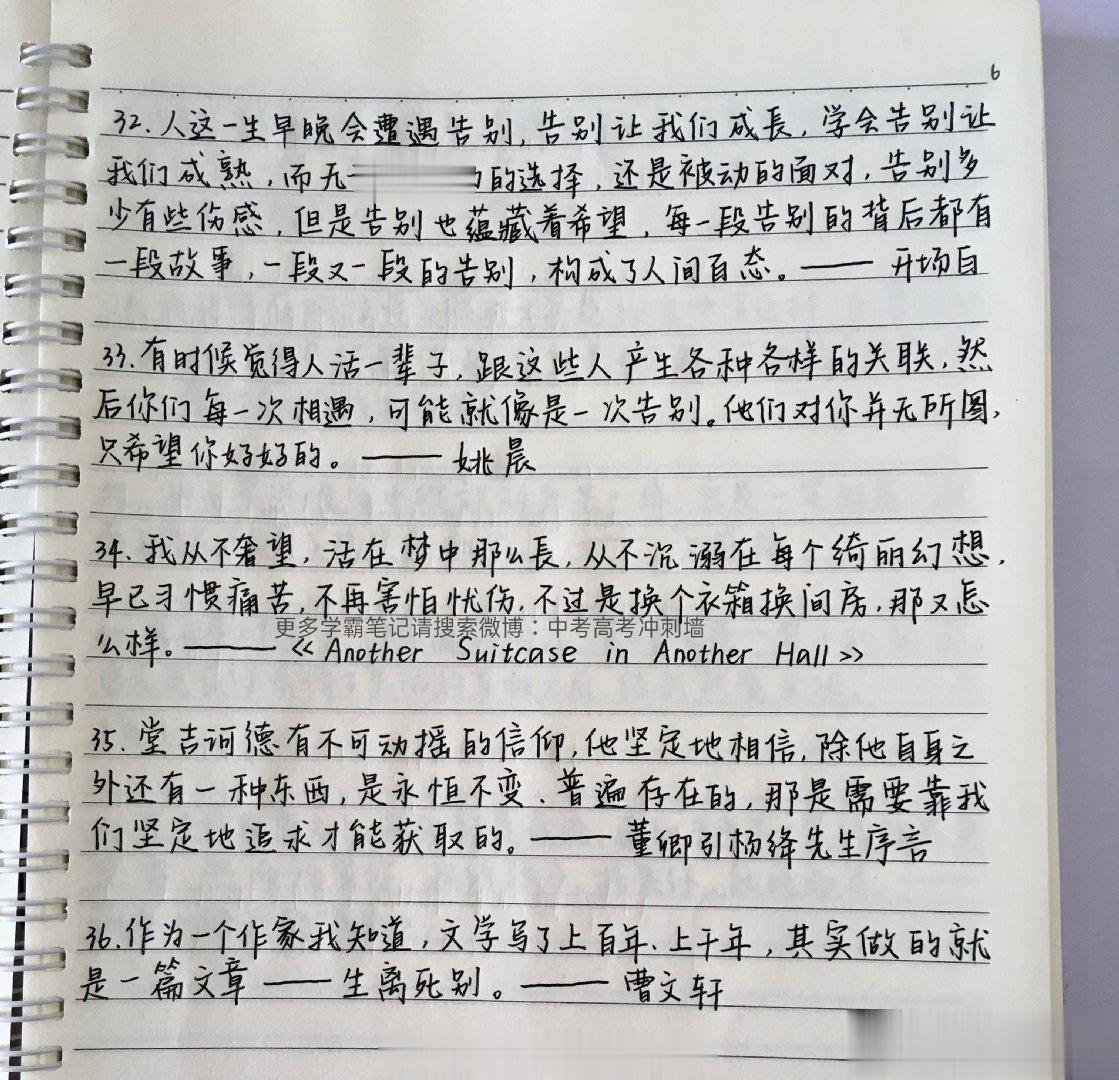 6
32.人这一生早晚会遭遇告别,告别让我们成長,学会告别让
我们成熟,而无 的选择,还是被动的面对,告别多
少有些伤感,但是告别也蕴藏着希望,每一段告别的背后都有
一段故事,一段又一段的告别,构成了人间百态。——开场白
33.有时候觉得人活一辈子,跟这些人产生各种各样的关联,然
后你们每一次相遇,可能就像是一次告别。他们对你并无所图,
只希望你好好的。——姚晨
34.我从不奢望,活在梦中那么長,从不沉溺在每个绮丽幻想,
早已习惯痛苦,不再害怕忧伤,不过是换个衣箱换间房,那又怎
更多学霸笔记请搜索微博:中考高考冲刺墙
么样。——《Another Suitcase in Another Hall》
35.堂吉诃德有不可动摇的信仰,他坚定地相信,除他自身之
外还有一种东西,是永恒不变、普遍存在的,那是需要靠我
们坚定地追求才能获取的。——董卿引杨绛先生序言
36.作为一个作家我知道,文学写了上百年、上千年,其实做的就
是一篇文章——生离死别。——曹文轩